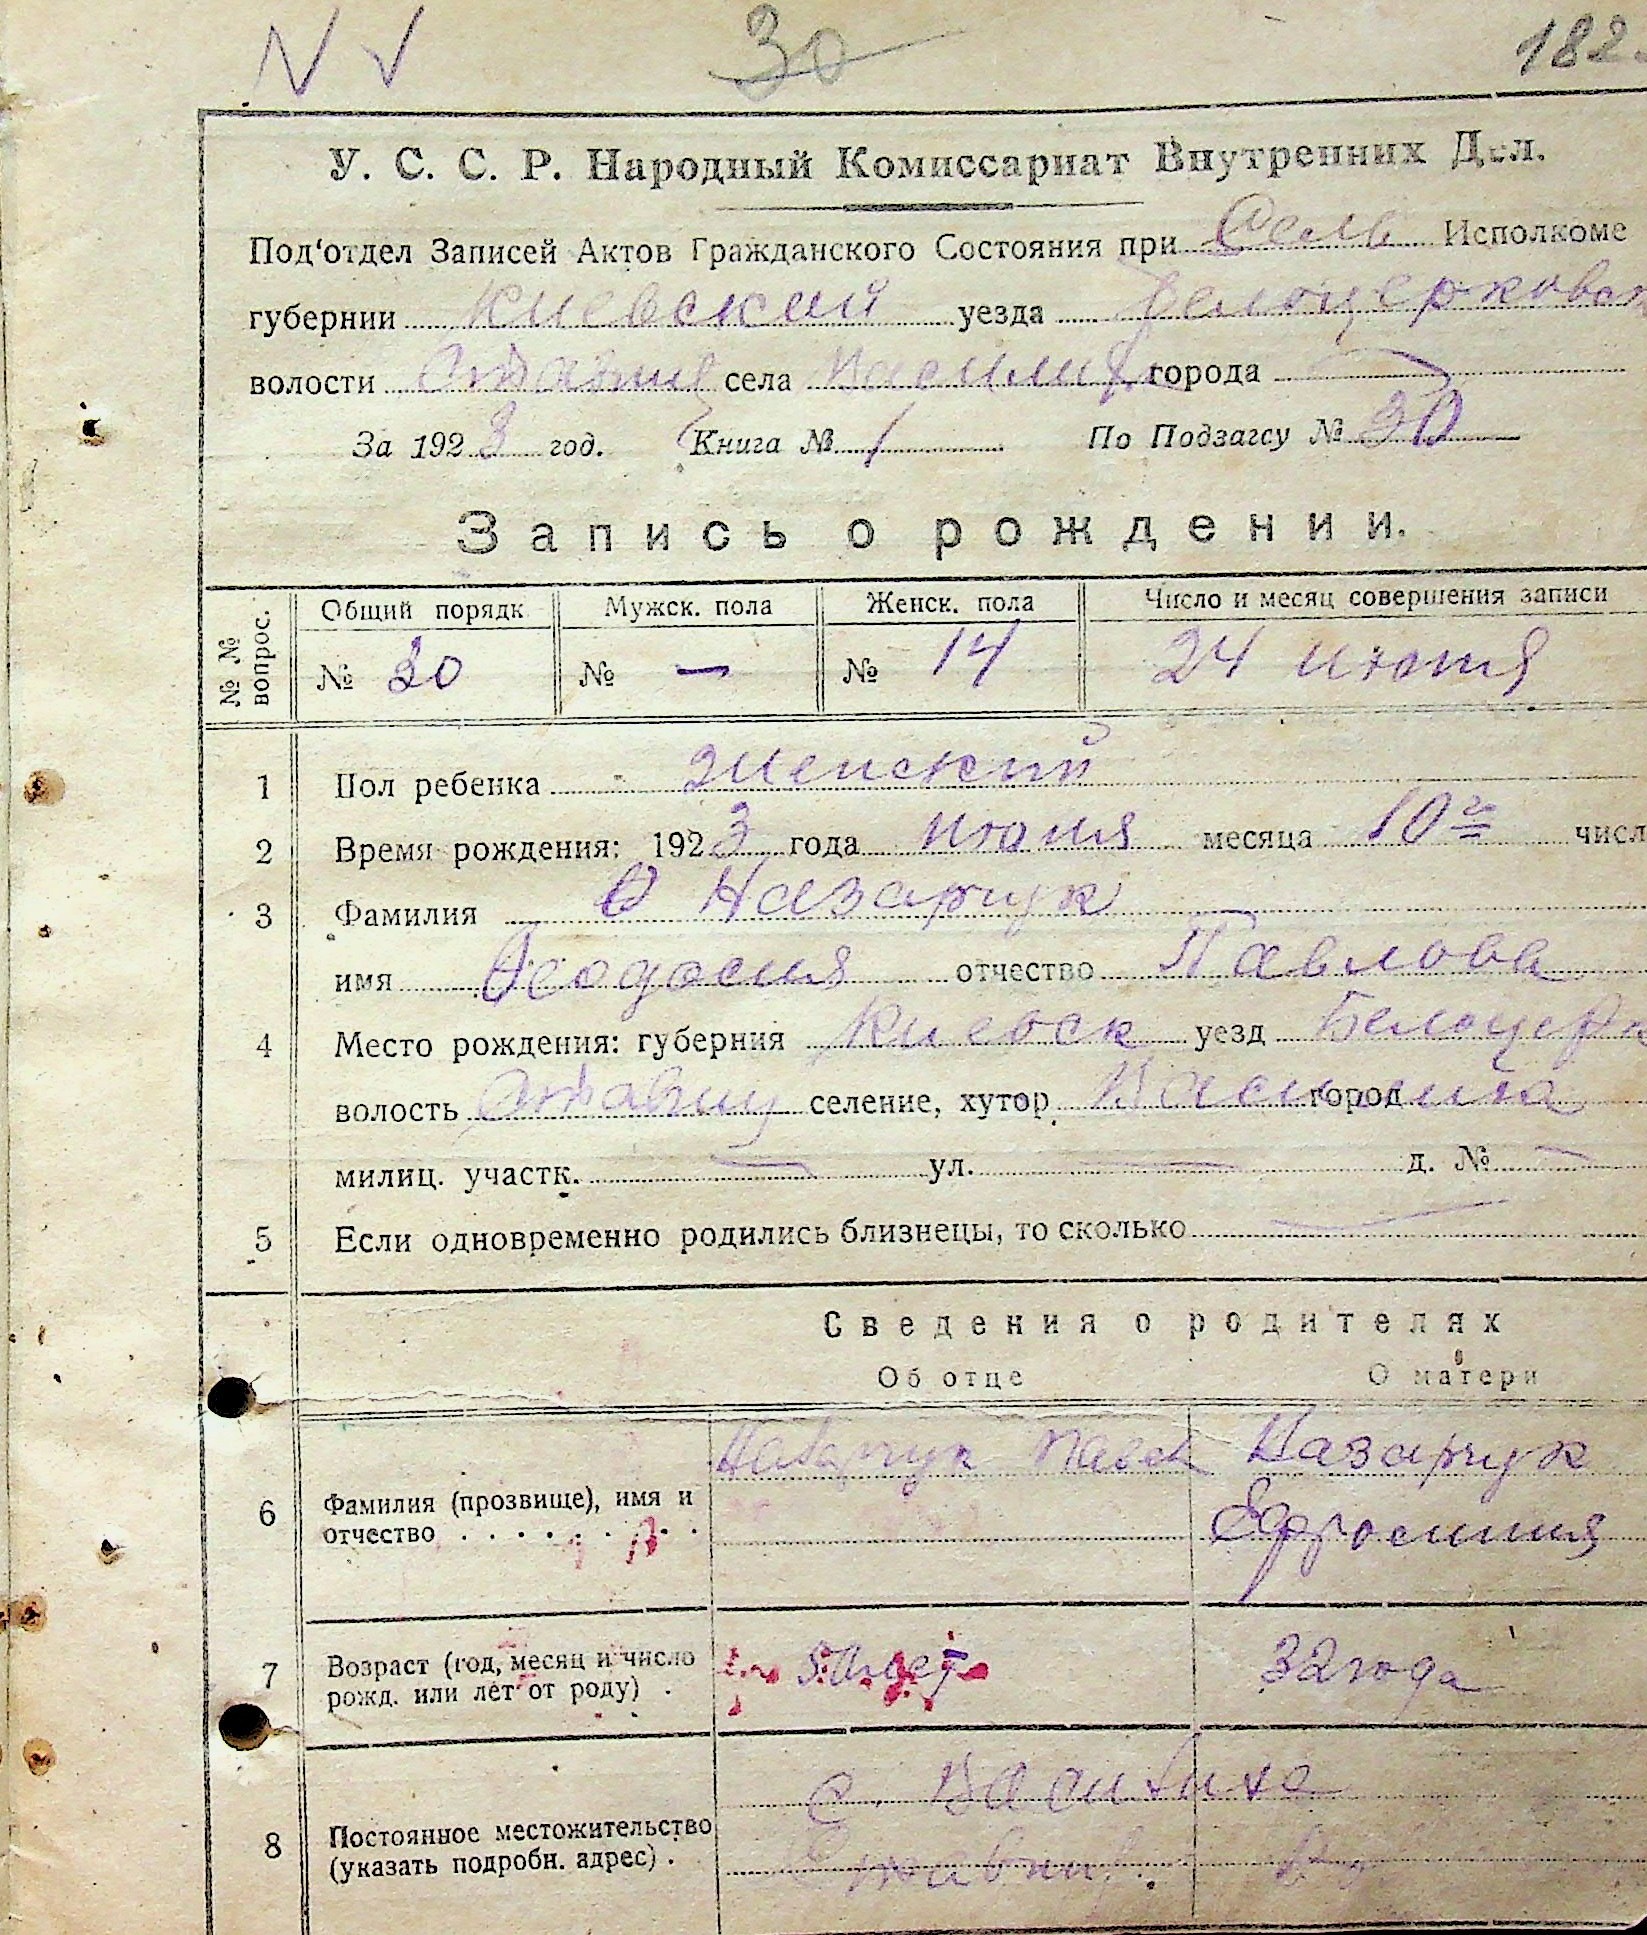 30
182
У. С. С. Р. Народный Комиссариат Внутренних Дел.
Под'отдел Записей Актов Гражданского Состояния при Сель Исполкоме
губернии Киевской уезда Белоцерковск
волости Ставищ села Василиха города
За 1923 год. Книга № 1 По Подзагсу № 30
Запись о рождении.
№ № вопрос. Общий порядк Мужск. пола Женск. пола Число и месяц совершения записи
№ 30 № — № 14 24 июня
1 Пол ребенка женский
2 Время рождения: 1923 года июня месяца 10го числ
3 Фамилия Назарчук
имя Феодосия отчество Павлова
4 Место рождения: губерния Киевск уезд Белоцерк
волость Ставищ селение, хутор Василиха город
милиц. участк. — ул. — д. № —
5 Если одновременно родились близнецы, то сколько —
Сведения о родителях
Об отце О матери
6 Фамилия (прозвище), имя и отчество Назарчук Павел Назарчук Ефросиния
7 Возраст (год, месяц и число рожд. или лет от роду) лет 32 года
8 Постоянное местожительство (указать подробн. адрес) с. Василиха
Ставищ.